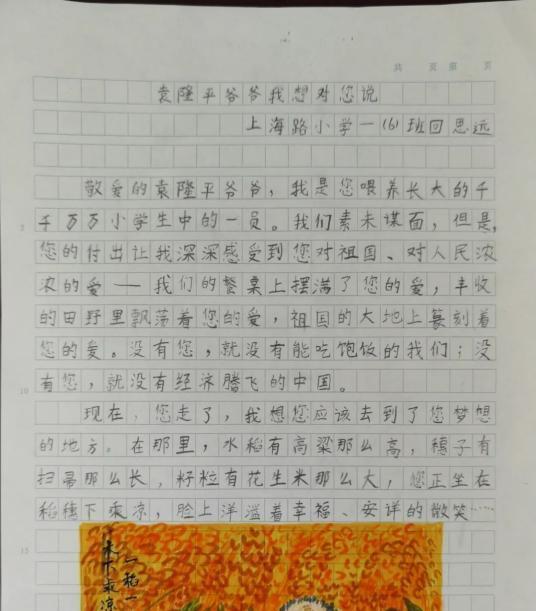 共 页 第 页
袁隆平爷爷我想对您说
上海路小学一(6)班回思远
敬爱的袁隆平爷爷，我是您喂养长大的千
千万万小学生中的一员。我们素未谋面，但是，
您的付出让我深深感受到您对祖国、对人民浓
浓的爱——我们的餐桌上摆满了您的爱，丰收
的田野里飘荡着您的爱，祖国的大地上篆刻着
您的爱。没有您，就没有能吃饱饭的我们；没
有您，就没有经济腾飞的中国。
10
现在，您走了，我想您应该去到了您梦想
的地方。在那里，水稻有高粱那么高，穗子有
扫帚那么长，籽粒有花生米那么大，您正坐在
稻穗下乘凉，脸上洋溢着幸福、安详的微笑……
15
一稻一
禾下乘凉